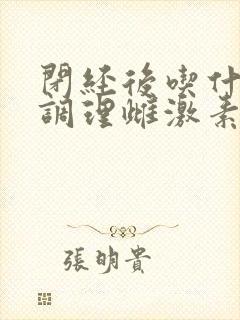 閉經後喫什
調理雌激素
張明貴